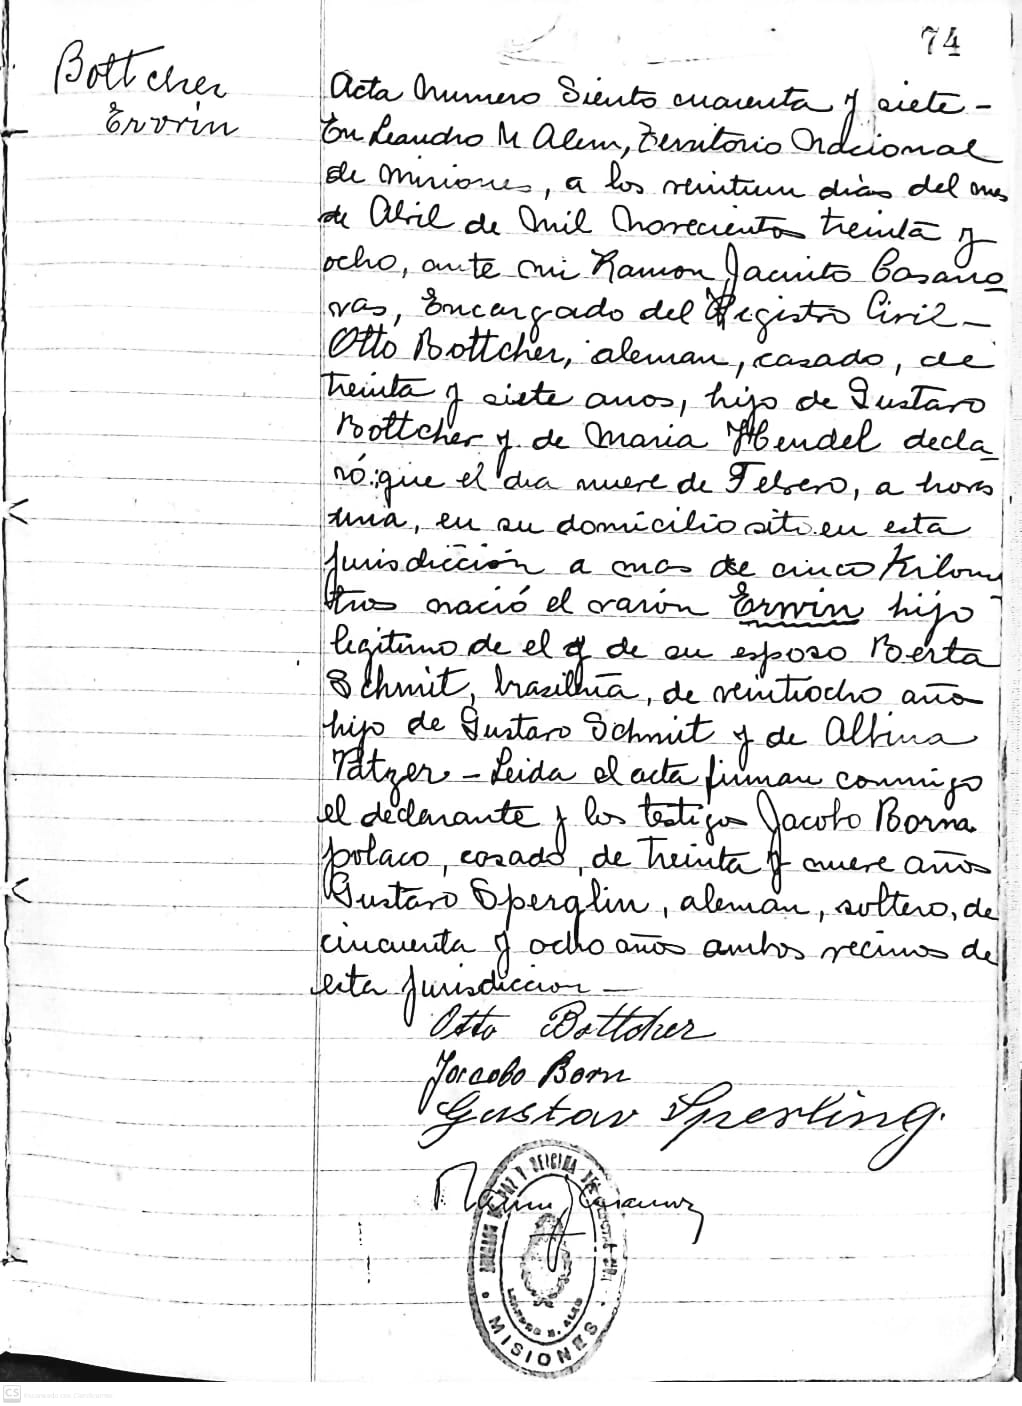 74
Bottcher
Erwin
Acta Numero Siento cuarenta y siete -
En Leandro N Alem, Territorio Nacional
de Misiones, a los veintiun dias del mes
de Abril de Mil Novecientos treinta y
ocho, ante mi Ramon Jacinto Casano
vas, Encargado del Registro Civil -
Otto Bottcher, aleman, casado, de
treinta y siete anos, hijo de Gustavo
Bottcher y de Maria Hendel decla
ró: que el dia nueve de Febrero, a horas
una, en su domicilio sito en esta
jurisdicción a mas de cinco Kilome
tros nació el varón Erwin hijo
legitimo de el y de su esposa Berta
Schmit, brasileña, de veintiocho año
hijo de Gustavo Schmit y de Albina
Patzer - Leida el acta firman conmigo
el declarante y los testigos Jacobo Borna
polaco, casado, de treinta y nueve años
Gustavo Sperglin, aleman, soltero, de
cincuenta y ocho años ambos vecinos de
esta jurisdiccion -
Otto Bottcher
Jacobo Born
Gustav Sperling.
MISIONES
CS